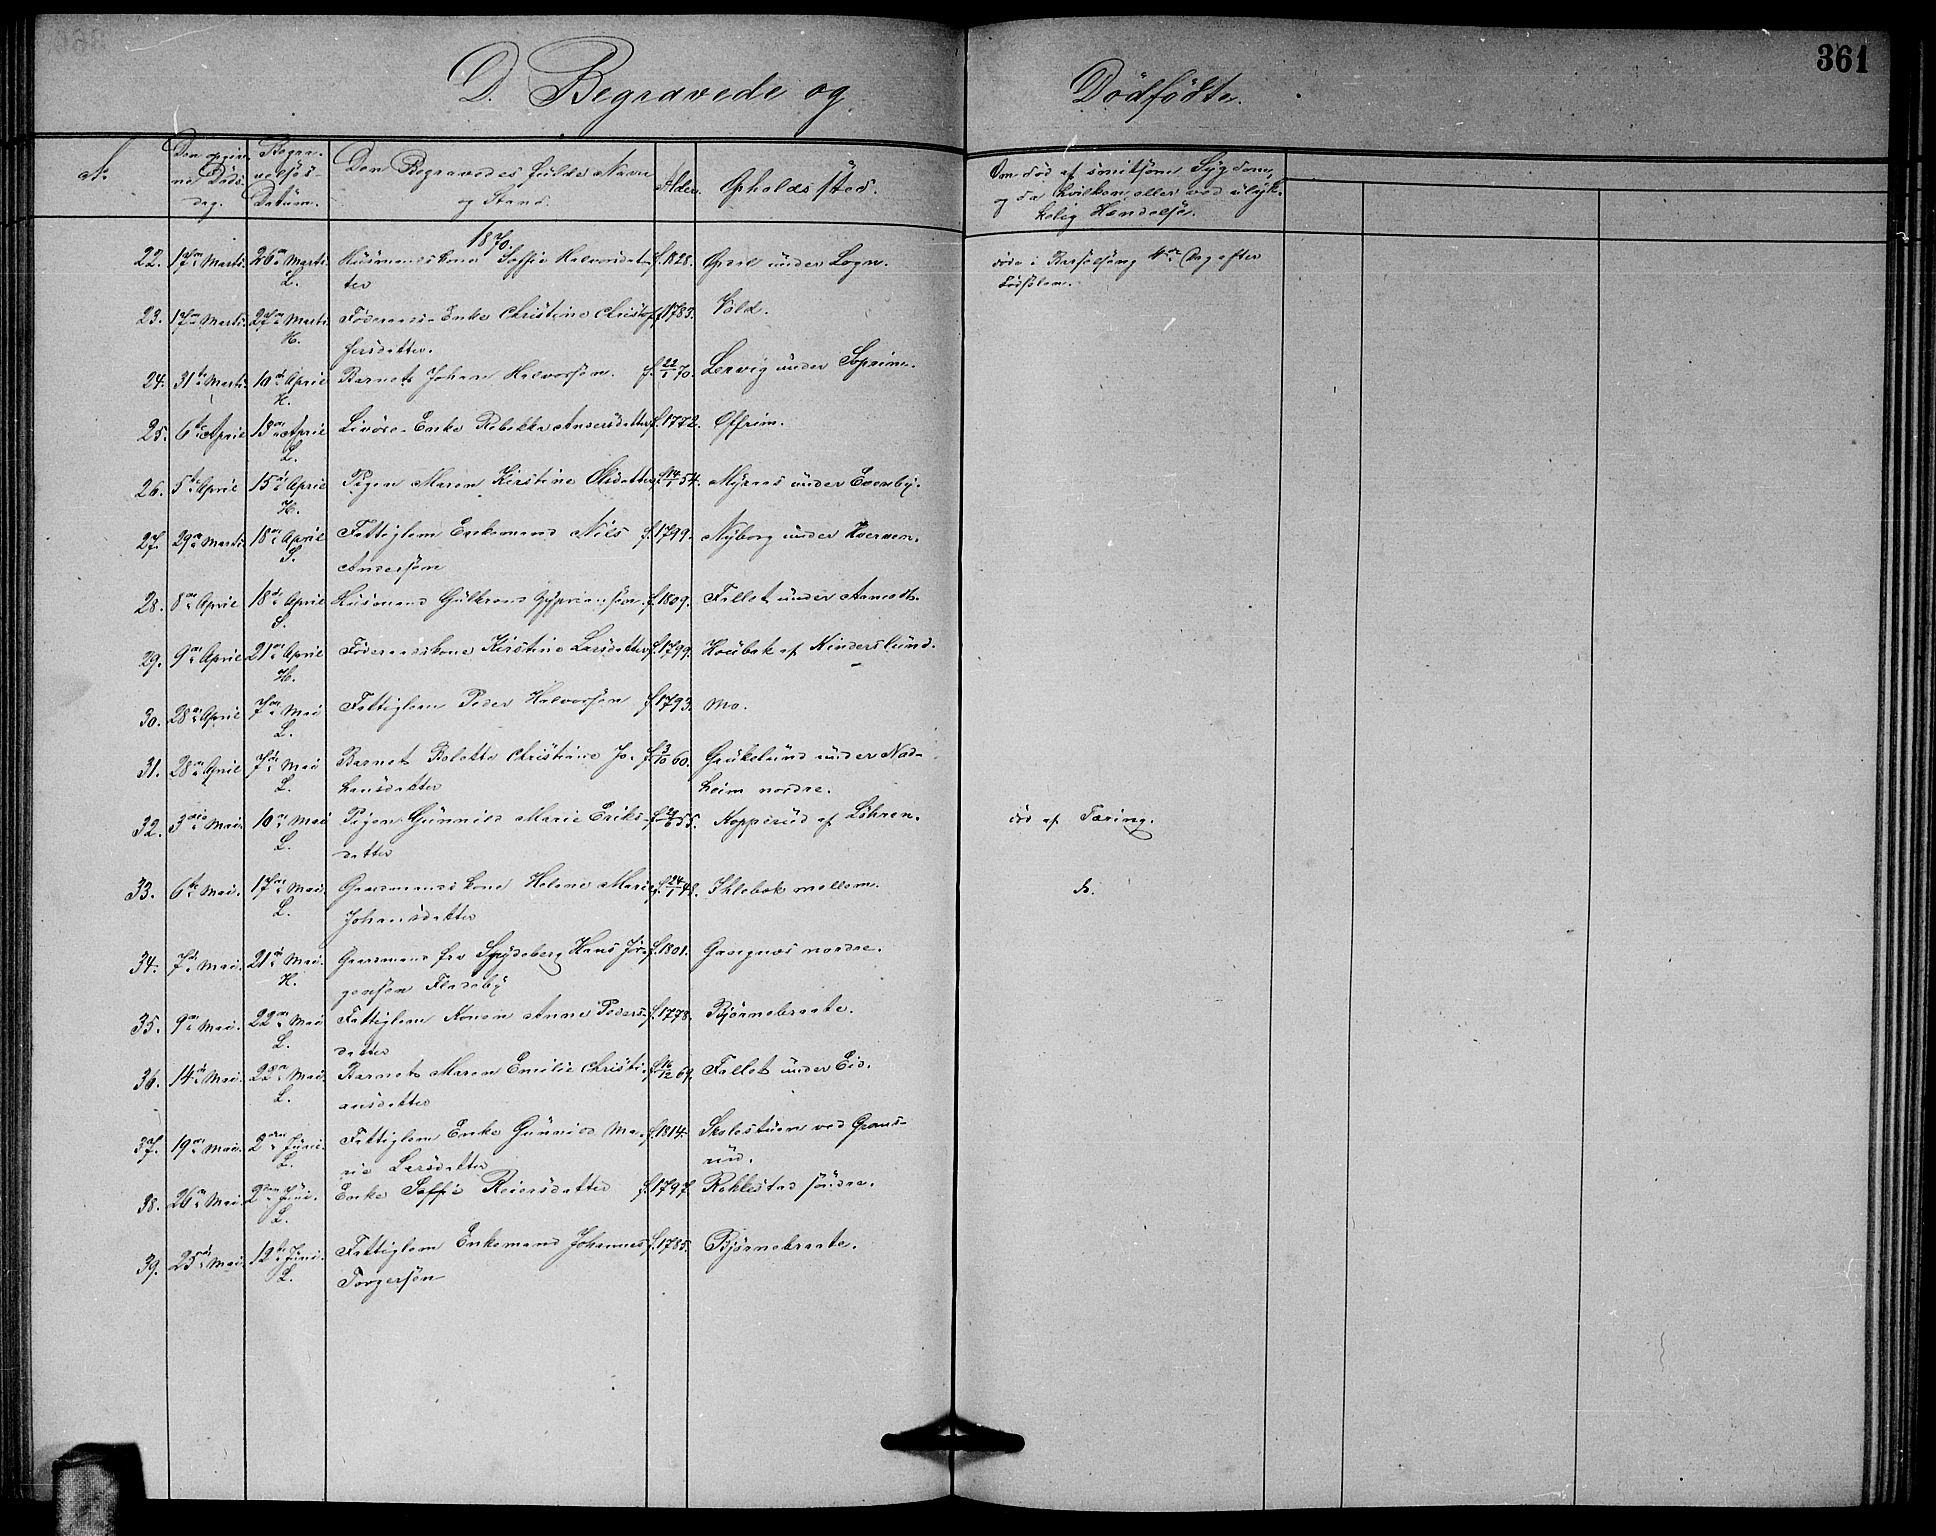 361
D. Begravede og Dødfødte.
No
Den opgivne Døds dag.
Begravelses Datum.
Den Begravedes fulde Navn og Stand.
Alder.
Opholdssted.
Om død af smitsom Sygdom, og da hvilken, eller ved ulykkelig Hændelse.
1870.
22. 17de Marts. 26de Marts. L. Huusmandskone Soffie Halvorsdatter f. 1828. under Sogn. døde i Barselseng 4de Dag efter Fødselen.
23. 17de Marts. 27de Marts. H. Føderaads-Enke Christine Christoffersdatter. f. 1783. Vold.
24. 31te Marts. 10de April H. Barnet Johan Halvorsøn. f. 22/1 70. Lervig under Soprim.
25. 6te April 13de April L. Livøre-Enke Rebekka Andersdatter f. 1772. Offrim.
26. 5te April 15de April H. Pigen Maren Kirstine Olsdatter f. 14/1 54. Myraas under Evenby.
27. 29de Marts. 18de April S. Fattiglem Enkemand Nils Andersøn f. 1799. Nyborg under Kverven.
28. 8de April 18de April S. Huusmand Gulbrand Cypriansøn f. 1809. Fallet under Aamodt.
29. 9de April 21de April H. Føderaadskone Kirstine Larsdatter f. 1799. Houbak af Hinderslund.
30. 28de April 7de Mai L. Fattiglem Peder Halvorsøn f. 1793. Mo.
31. 28de April 7de Mai L. Barnet Bolette Christine Johansdatter f. 3/10 60. Grukelund under Nadheim nordre.
32. 3die Mai. 10de Mai L. Pigen Gunnild Marie Eriksdatter 55. Kopperud af Løhren. død af Tæring.
33. 6te Mai. 17de Mai. L. Gaardmandskone Helene Marie Johansdatter f. 24/1 48. Ihlebæk mellem. do.
34. 7de Mai. 21de Mai. H. Gaardmand fra Spydeberg Hans Jørgensøn Fladeby f. 1801. Gaasegnæs nordre.
35. 9de Mai. 22de Mai L. Fattiglem Konen Anne Pedersdatter f. 1778. Bjørnebraate.
36. 14de Mai. 22de Mai. L. Barnet Maren Emilie Christiansdatter f. 16/12 69. Fallet under Eid.
37. 19de Mai. 2den Juni. L. Fattiglem Enke Gunnild Marie Larsdatter f. 1814. Skolestuen ved Graasrud.
38. 26de Mai. 2den Juni. L. Enke Soffie Reiersdatter f. 1797. Rohlestad søndre.
39. 25de Mai. 12te Juni. L. Fattiglem Enkemand Johannes Torgersøn f. 1785. Bjørnebraate.